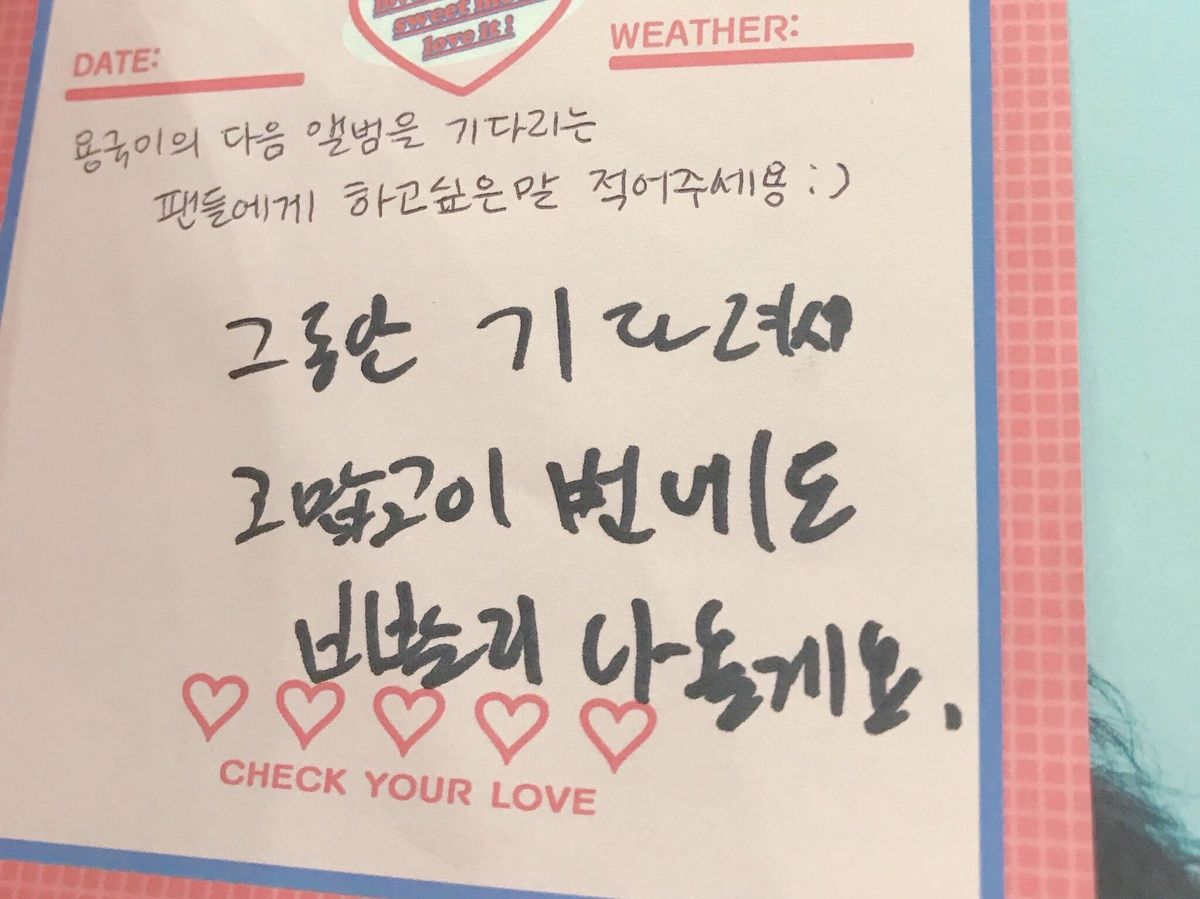 sweet
love it!
DATE:
WEATHER:
용국이의 다음 앨범을 기다리는
팬들에게 하고싶은말 적어주세용 :)
그동안 기다려서
고맙고이 번에도
빨리 나올게요.
CHECK YOUR LOVE